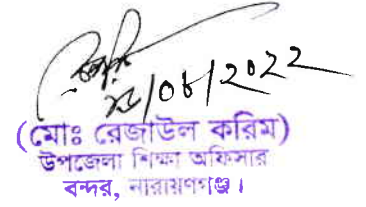 /06/2022
(মোঃ রেজাউল করিম)
উপজেলা শিক্ষা অফিসার
বন্দর, নারায়ণগঞ্জ।